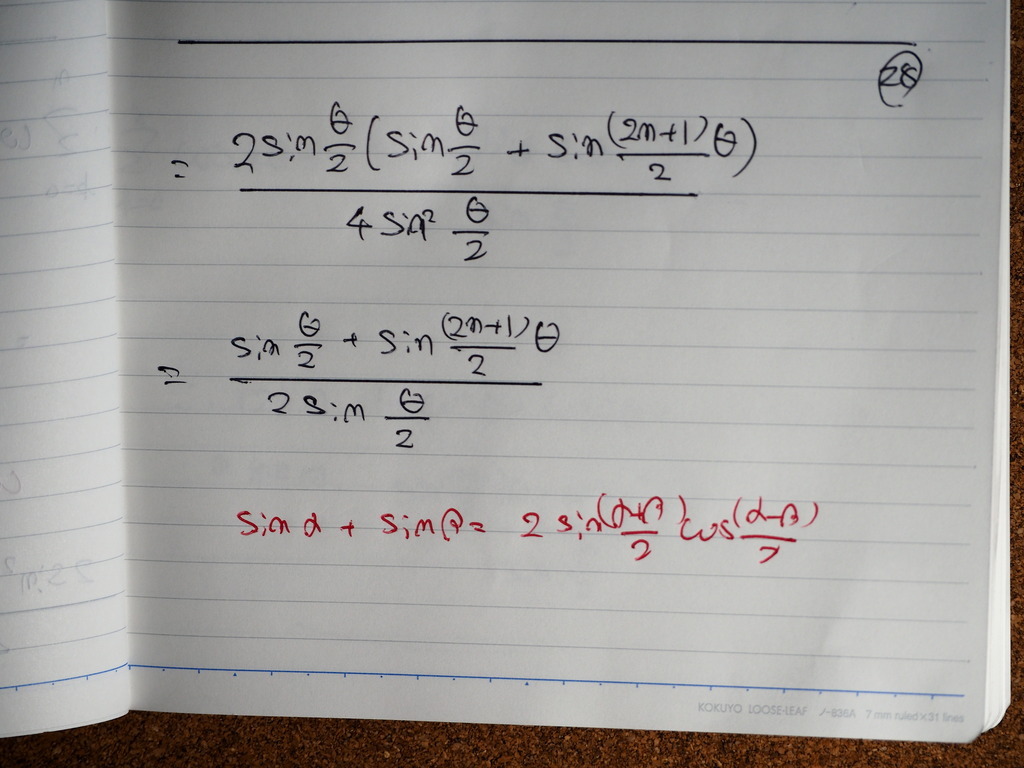 28
= 2 sin θ/2 ( sin θ/2 + sin (2n+1)/2 θ )
4 sin² θ/2
= sin θ/2 + sin (2n+1)/2 θ
2 sin θ/2
sin α + sin β = 2 sin (α+β)/2 cos (α-β)/2
KOKUYO LOOSE-LEAF ノ-836A 7 mm ruled×31 lines